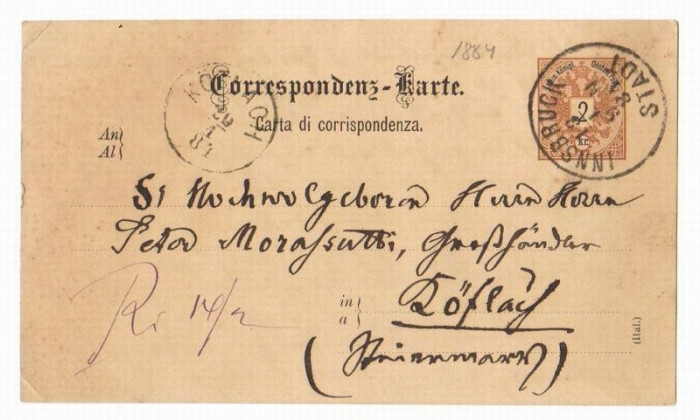 1884
Correspondenz-Karte.
Carta di corrispondenza.
INNSBRUCK STADT
2
kr.
An
Al
Sr Hochwolgeboren Herrn Herrn
Peter Morassutti, Großhändler
in
a
Köflach
(Steiermark)
(Ital.)